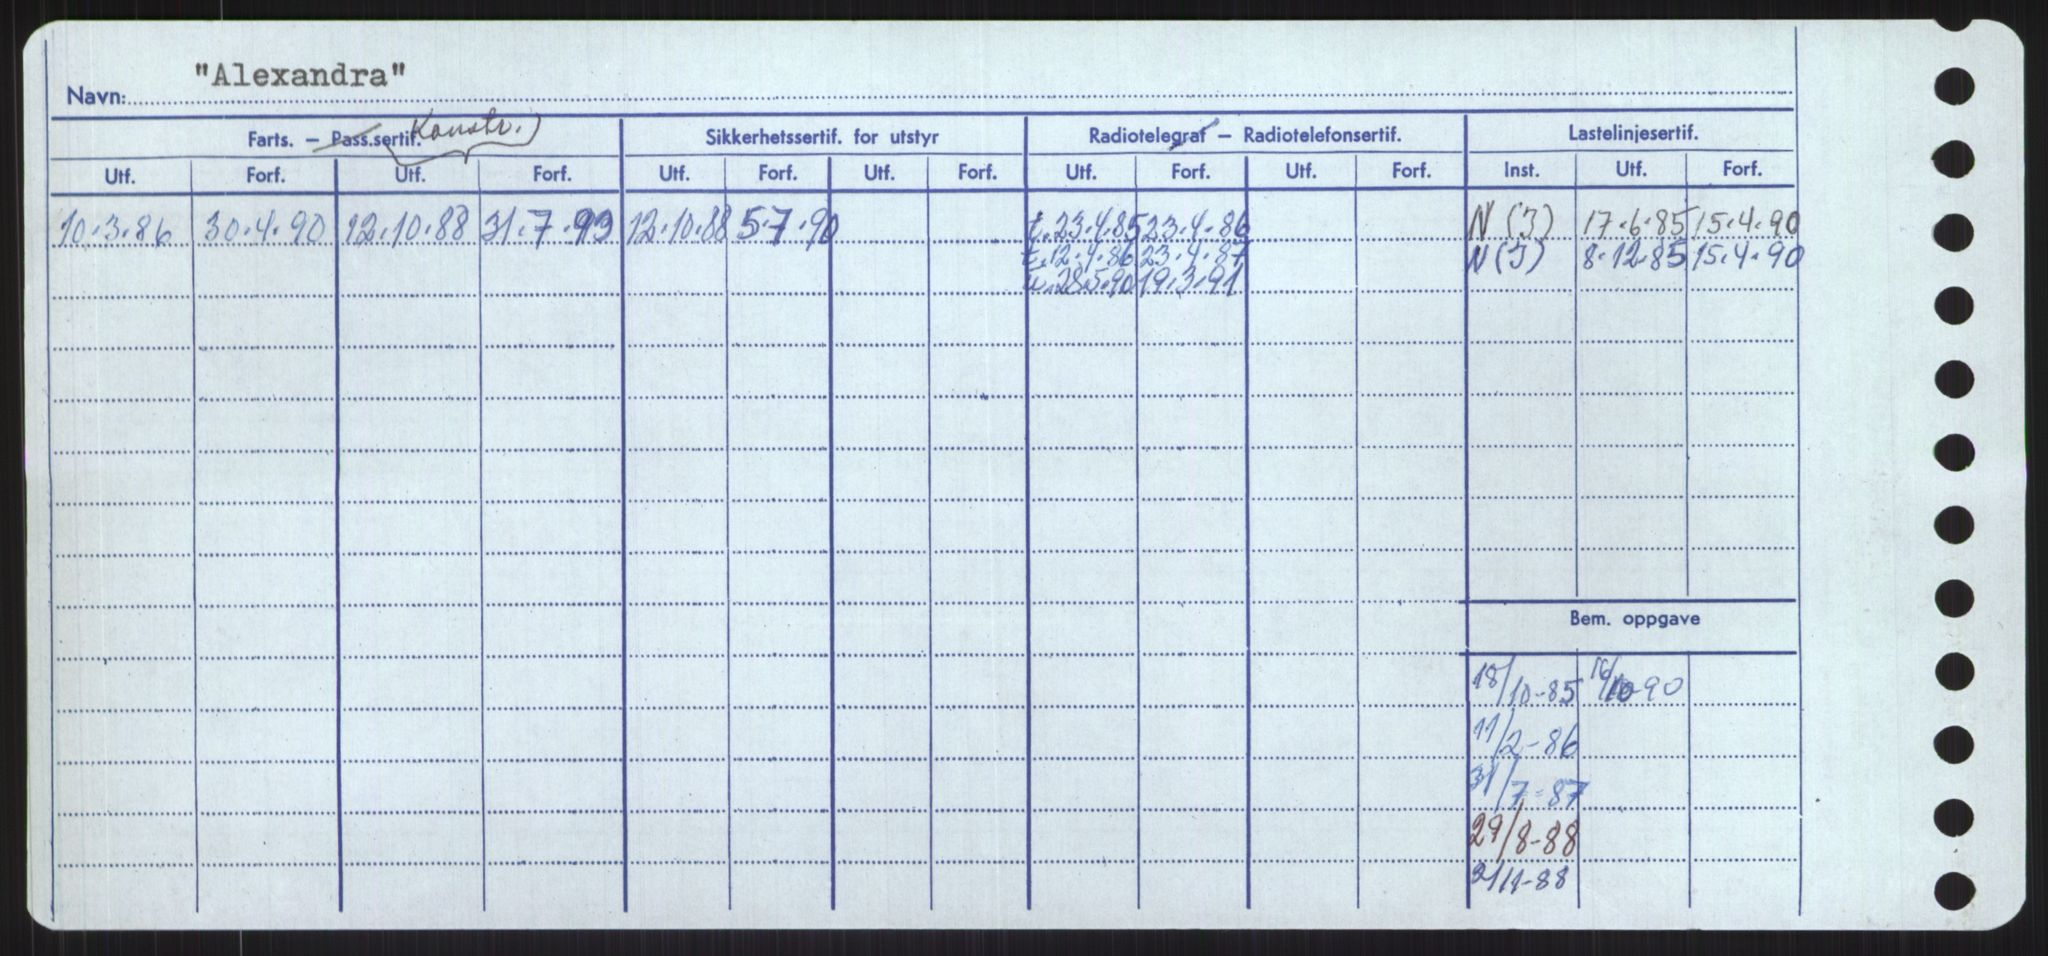 Navn: "Alexandra"
Farts. — Pass.sertif. Konstr. Sikkerhetssertif. for utstyr Radiotelegraf — Radiotelefonsertif. Lastelinjesertif.
Utf. Forf. Utf. Forf. Utf. Forf. Utf. Forf. Utf. Forf. Utf. Forf. Inst. Utf. Forf.
10.3.86 30.4.90 12.10.88 31.7.93 12.10.88 5.7.90 t.23.4.85 23.4.86 N (J) 17.6.85 15.4.90
t.12.4.86 23.4.87 N (J) 8.12.85 15.4.90
28.5.90 19.3.91
Bem. oppgave
18/10-85 16/10-90
11/2-86
31/7-87
29/8-88
2/11-88